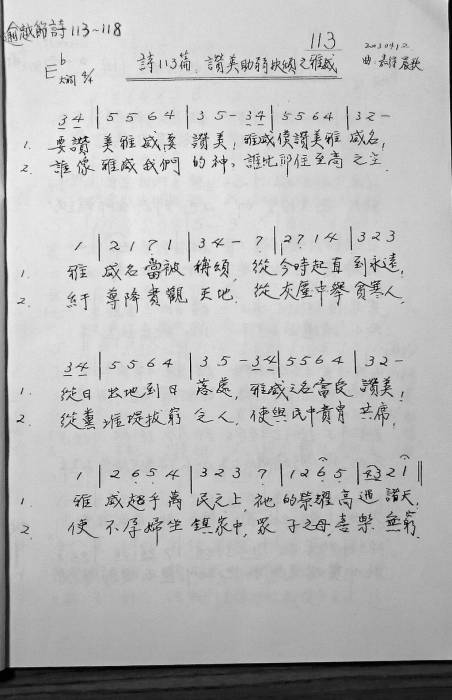 逾越節詩113~118
113
20230412
詩113篇 讚美助弱扶傾之雅威
E♭ 大調 4/4
曲:
3 4 | 5 5 6 4 | 3 5 - 3 4 | 5 5 6 4 | 3 2 -
1. 要讚 美雅威要 讚美, 雅威僕讚美雅 威名,
2. 誰像 雅威我們 的神, 誰比那住至高 之主
1 | 2 1 7 1 | 3 4 - 7 | 2 7 1 4 | 3 2 3
1. 雅 威名當被 稱頌, 從 今時起直 到永遠,
2. 紆 尊降貴觀 天地, 從 灰塵中舉 貧寒人,
3 4 | 5 5 6 4 | 3 5 - 3 4 | 5 5 6 4 | 3 2 -
1. 從日 出地到日 落處, 雅威之名當受 讚美,
2. 從糞 堆提拔窮 乏人, 使與民中貴冑 共席,
1 | 2 6 5 4 | 3 2 3 7 | 1 2 6 5 | 4 3 2 1 ||
1. 雅 威超乎萬 民之上, 祂 的榮耀高 過諸天,
2. 使 不孕婦坐 鎮家中, 眾 子之母喜樂 無窮